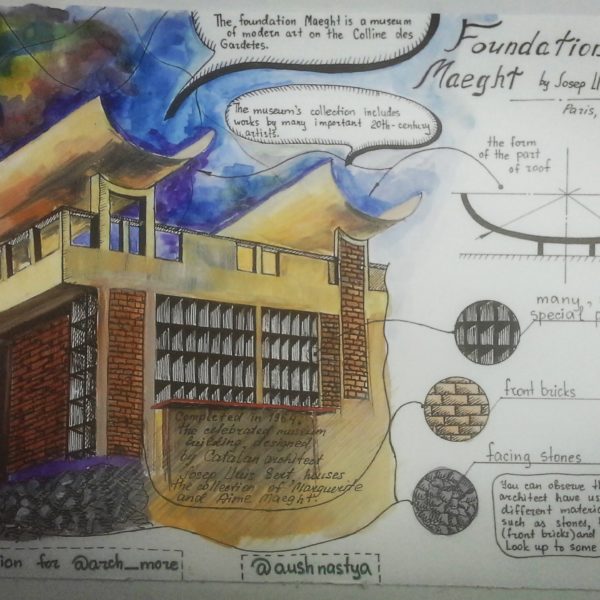 The foundation Maeght is a museum
of modern art on the Colline des
Gardetes.
Foundation
Maeght by Josep Ll
Paris,
The museum's collection includes
works by many important 20th-century
artists.
the form
of the part
of roof
many,
special p
front bricks
facing stones
Completed in 1964,
the celebrated museum
building, designed
by Catalan architect
Josep Lluis Sert, houses
the collection of Marguerite
and Aime Maeght.
You can observe th
architect have us
different materia
such as stones,
(front bricks) and
Look up to some
ion for @arch_more
@aushnastya